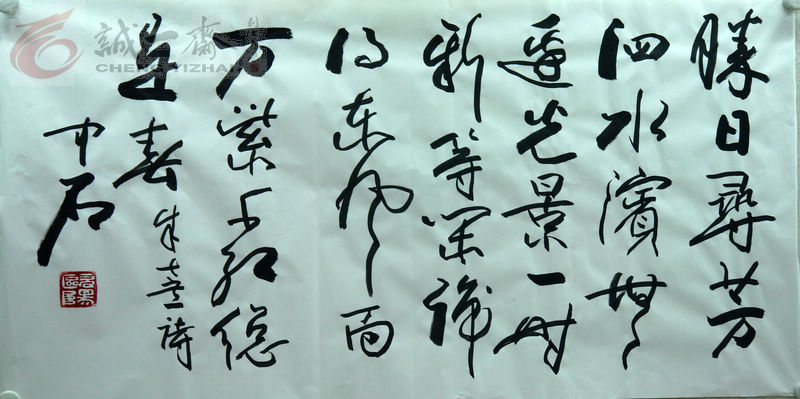 勝日尋芳
泗水濱無
邊光景一时
新等閑識
得東風面
万紫千紅總
是春
朱熹詩
中石
誠一齋
CHENGYIZHAI